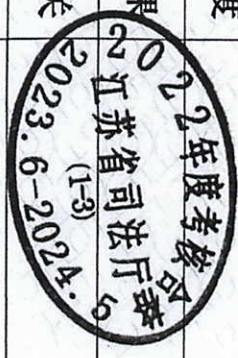 2022年度考核合格
江苏省司法厅
(1-3)
2023.6-2024.5